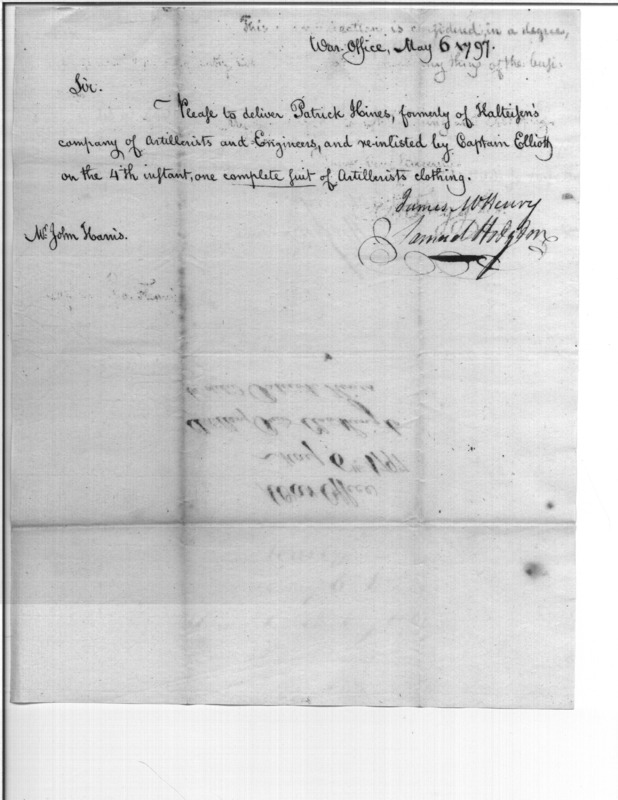 This is considered, in a degree,
War Office, May 6 1797.
thing of the
Sir.
Please to deliver Patrick Hines, formerly of Kalteisen's
company of Artillerists and Engineers, and reinlisted by Captain Elliott
on the 4th instant, one complete suit of Artillerists clothing.
James McHenry
Samuel Hodgdon
Mr John Harris.
War Office
May 6th 1797